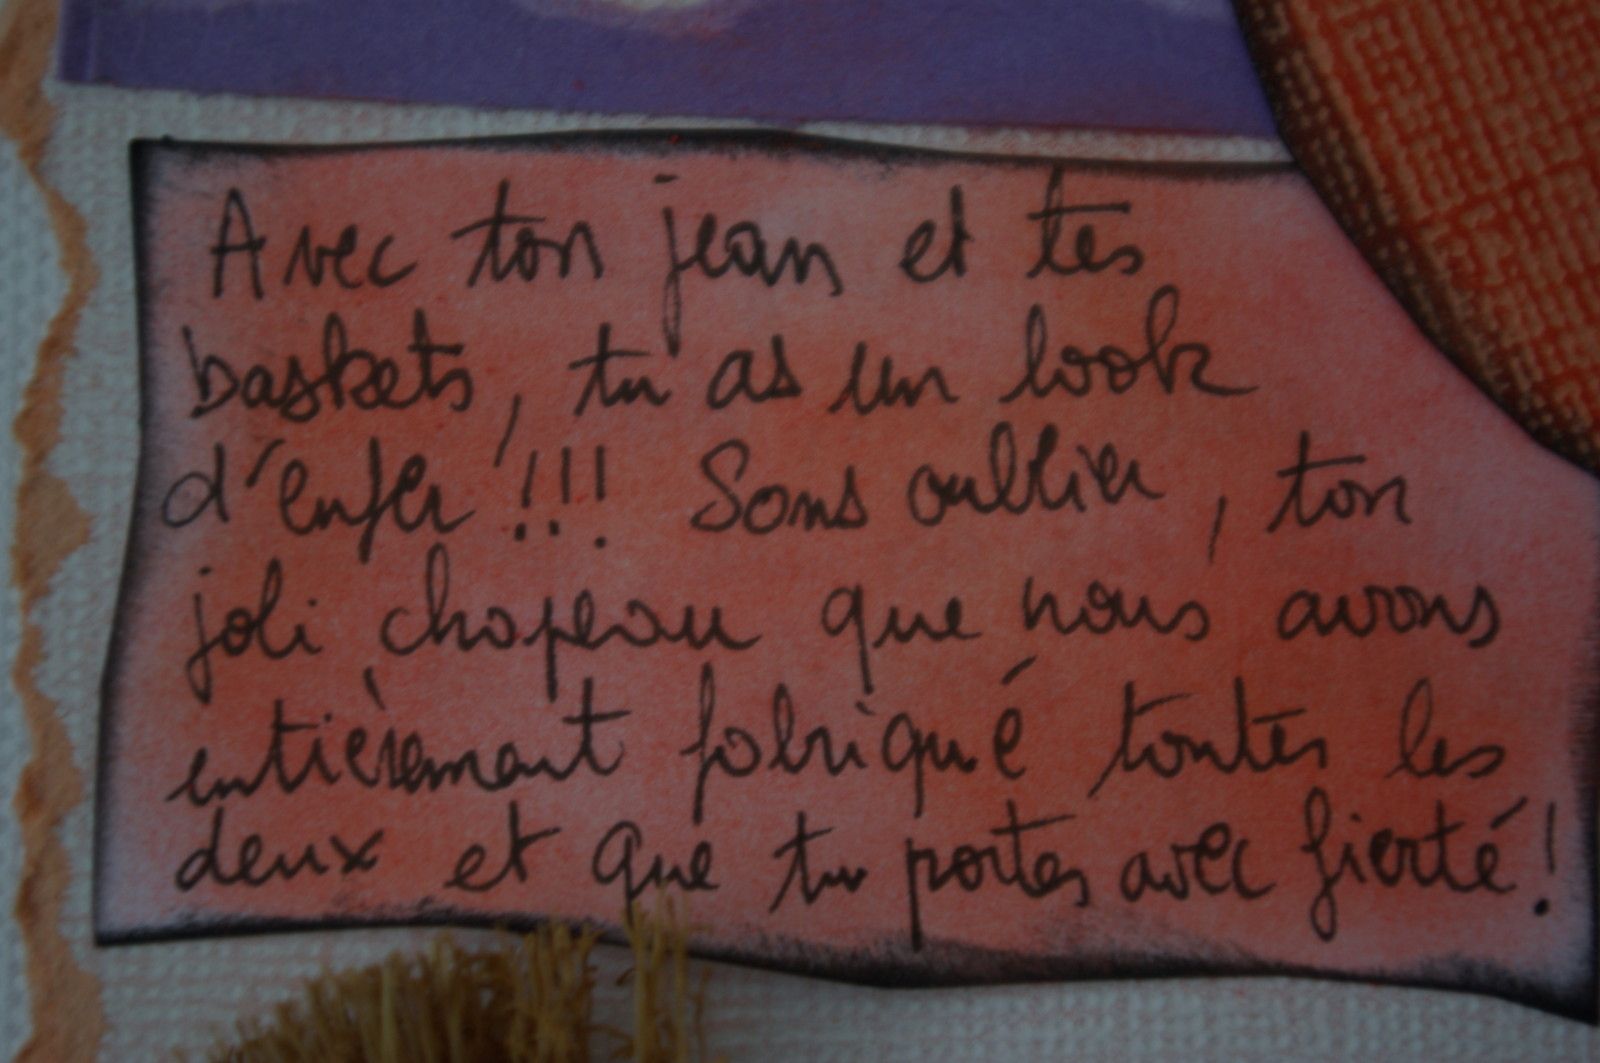 Avec ton jean et tes
baskets, tu as un look
d'enfer !!! Sans oublier, ton
joli chapeau que nous avons
entièrement fabriqué toutes les
deux et que tu portes avec fierté !